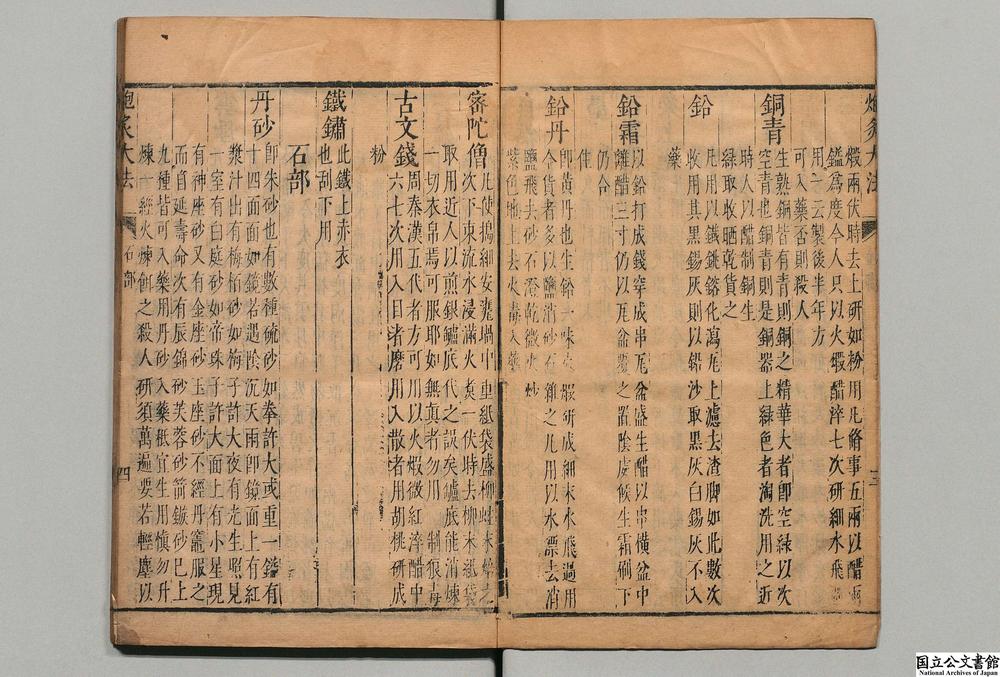 炮炙大法
三
煆兩伏時去上研如粉用凡修事五兩以醋兩
鎰為度今人只以火煆醋淬七次研細水飛
用一云製後半年方
可入藥否則殺人
銅青
生熟銅皆有青則銅之精華大者卽空綠以次
空青也銅青則是銅器上綠色者淘洗用之近
時人以醋制銅生
綠取收晒乾貨之
鉛
凡用以鐵銚鎔化瀉瓦上濾去渣脚如此數次
收用其黑錫灰則以鉛沙取黑灰白錫灰不入
藥
鉛霜
以鉛打成錢穿成串瓦盆盛生醋以串橫盆中
離醋三寸仍以瓦盆覆之置陰處候生霜刷下
仍合
住
鉛丹
卽黃丹也生鉛一味火煆研成細末水飛過用
今貨者多以鹽消砂石雜之凡用以水漂去消
鹽飛去砂石澄乾微火炒
紫色地上去火毒入藥
密陀僧
凡使搗細安瓷堝中重紙袋盛柳蛀末焙之
次下東流水浸滿火煮一伏時去柳末紙袋
取用近人以煎銀鑪底代之誤矣鑪底能消煉
一切衣帛焉可服耶如無真者勿用 制狼毒
古文錢
周秦漢五代者方可用以火煆微紅淬醋中
六七次用入目者磨用入散者用胡桃研成
粉
鐵鏽
此鐵上赤衣
也刮下用
石部
丹砂
卽朱砂也有數種硫砂如拳許大或重一鎰有
十四面面如鏡若遇陰沉天雨卽鏡面上有紅
漿汁出有梅栢砂如梅子許大夜有光生照見
一室有白庭砂如帝珠子許大面上有小星現
有神座砂又有金座砂玉座砂不經丹竈服之
而自延壽命次有辰錦砂芙蓉砂箭鏃砂已上
九種皆可入藥用丹砂入藥秪宜生用慎勿升
煉一經火煉餌之殺人研須萬遍要若輕塵以
炮炙大法
石部
四
国立公文書館
National Archives of Japan